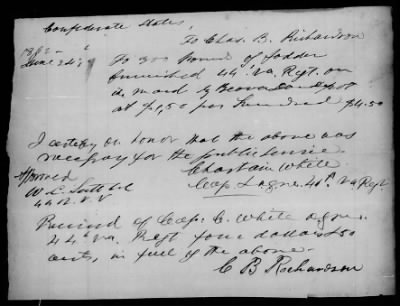 Confederate States,
To Chas. B. Richardson
1862
June 24th To 300 Pound of fodder
furnished 44th Va. Regt. on
the march by Beaver Dam
at $1,50 per hundred $4.50
I certify on honor that the above was
necessary for the public service
Chastain White
Approved
Capt & agnr 44th Va Regt
W. C. Scott Col
44th V. V
Received of Capt. C. White agnr.
44th Va. Regt four dollars & 50
cents, in full of the above.
C B Richardson